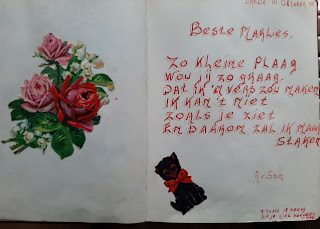 Beste Marlies,
Zo kleine plaag
Wou jij zo graag
Dat ik 'n vers zou maken
Ik kan 't niet
Zoals je ziet
En daarom zal ik maar
Staken